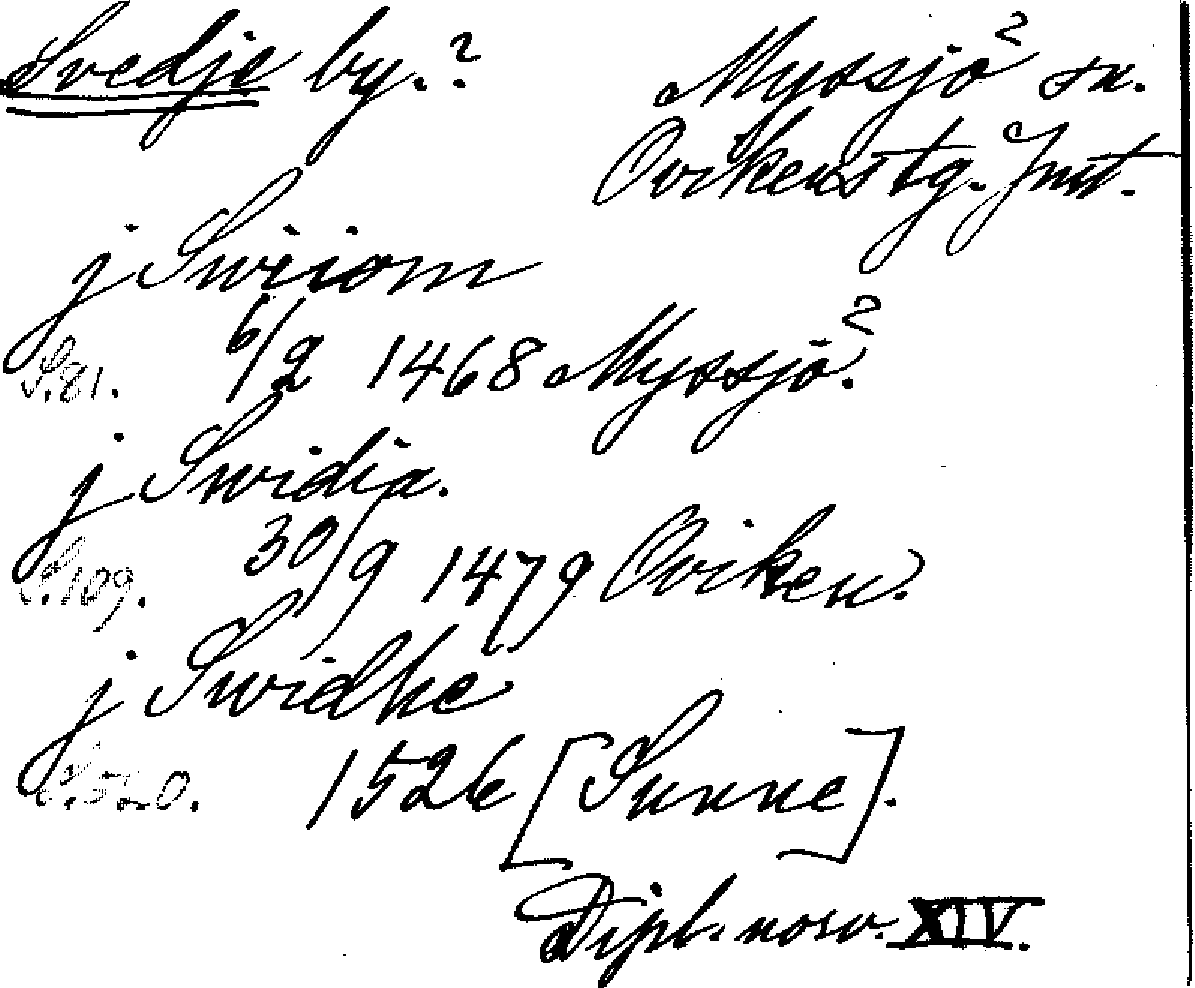 Svedje by.? Myssjö? sn.
Ovikens tg. Jmt.
j Swiiom
S.81. 6/2 1468 Myssjö?.
j Swidia.
S.109. 30/9 1479 Oviken.
j Swidhe
S.520. 1526 [Sunne].
Dipl. norv. XIV.